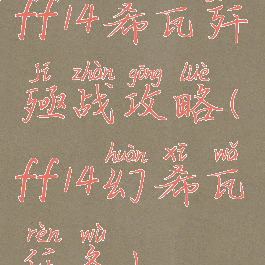 ff14希瓦歼
jí zhàn gōng lüè
殛战攻略(
huàn xī wǎ
ff14幻希瓦
rèn wù
任务)